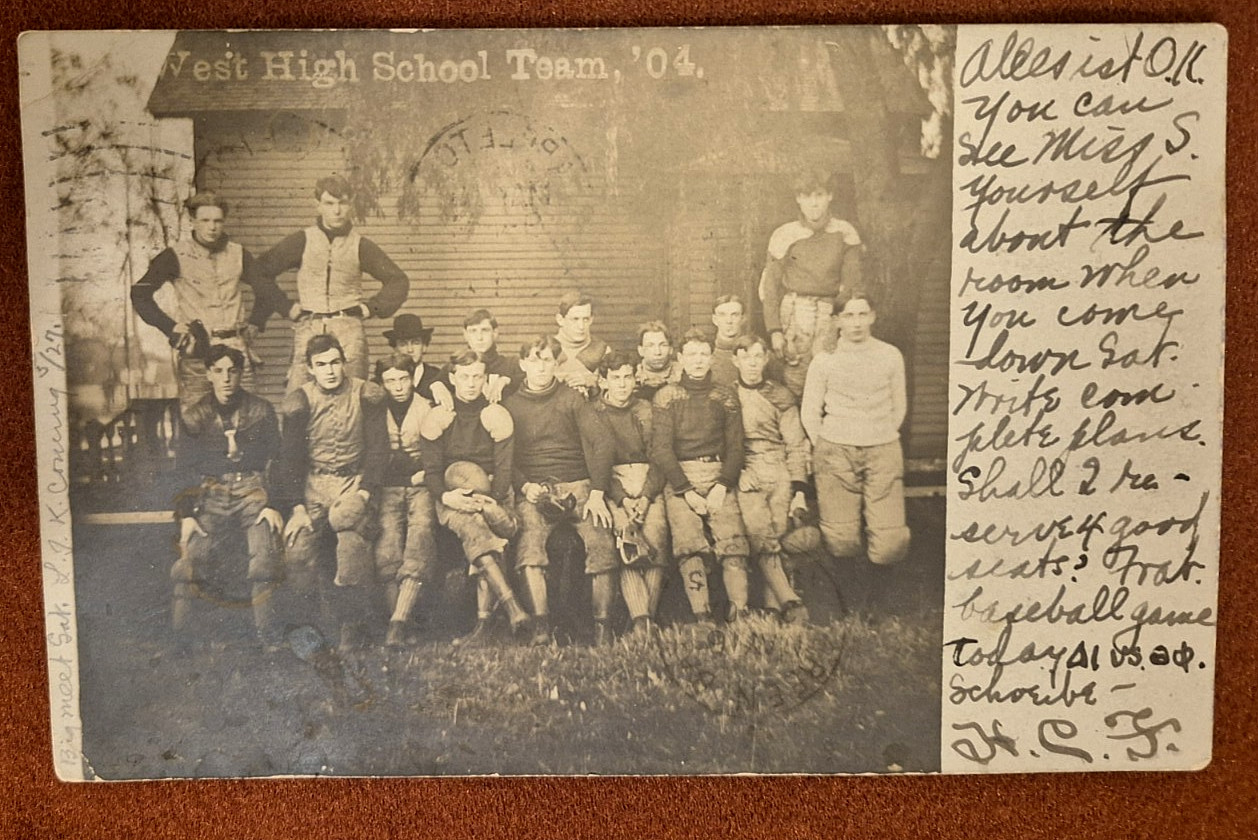 West High School Team, '04.
Alles ist O.K.
You can
see Miss S.
yourself
about the
room when
you come
down Sat.
Write com-
plete plans.
Shall I re-
serve 4 good
seats? Frat.
baseball game
today ΔI vs. ΘΦ.
Schreibe —
H.C.F.
Big meet Sat. L.J.K. Coming 5/27.
PLETO
GREEN B